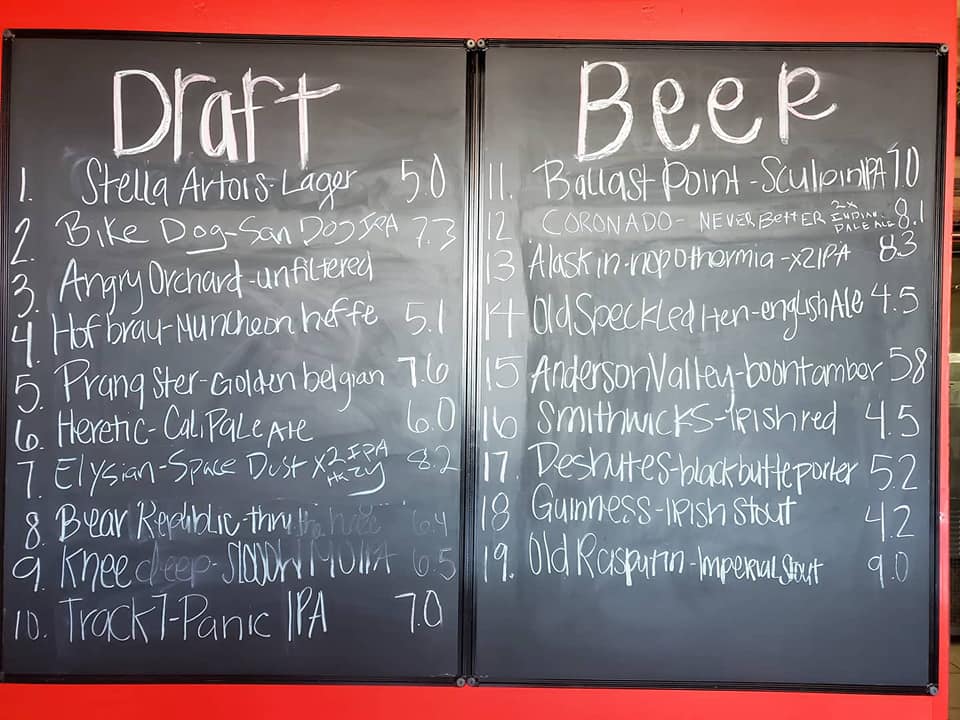 Draft Beer
1. Stella Artois-Lager 5.0
2. Bike Dog-San Dog IPA 7.3
3. Angry Orchard-unfiltered
4. Hofbrau-Muncheon heffe 5.1
5. Prang Ster-Golden belgian 7.6
6. Heretic-Cali Pale Ale 6.0
7. Elysian-Space Dust x2 IPA Hazy 8.2
8. Bear Republic-thru the 6.4
9. Knee deep- IPA 6.5
10. Track 7-Panic IPA 7.0
11. Ballast Point-Sculpin IPA 7.0
12 CORONADO- NEVER BETTER 2x INDIA PALE ALE 8.1
13 Alaskin-hopothermia-x2 IPA 8.3
14 Old Speckled Hen-english Ale 4.5
15 Anderson Valley-boont amber 58
16 Smithwicks-Irish red 4.5
17. Deshutes-black butte porter 5.2
18 Guinness-Irish stout 4.2
19. Old Rasputin-Imperial Stout 9.0